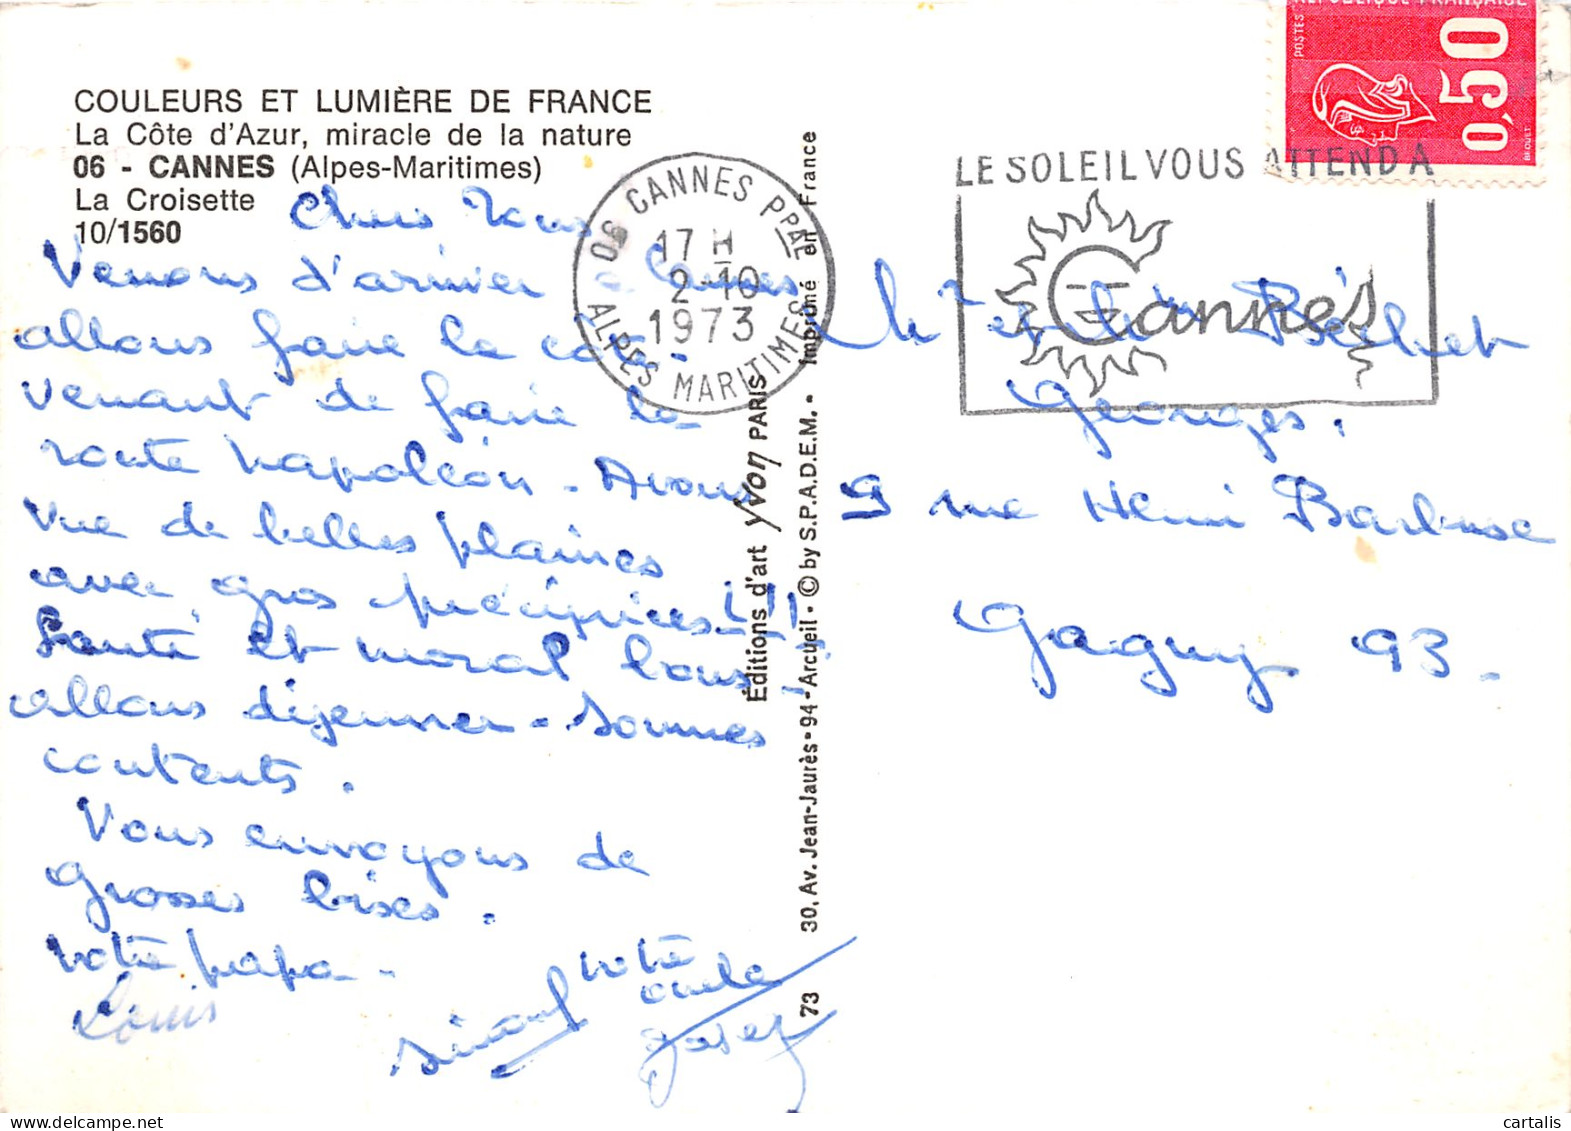 COULEURS ET LUMIÈRE DE FRANCE
La Côte d'Azur, miracle de la nature
06 - CANNES (Alpes-Maritimes)
La Croisette
10/1560
Chers Vous
Venons d'arriver à Cannes
allons faire la côte -
venant de faire la
route napoléon - Avons
vue de belles plaines
avec gros précipices !!!
Santé et moral bons
allons dijeuner - sommes
contents.
Vous envoyons de
grosses bises.
votre papa -
Louis
votre
oncle
06 CANNES PPAL
17 H
2-10
1973
ALPES MARITIMES
Éditions d'art Yvon PARIS
30, Av. Jean-Jaurès - 94 - Arcueil - © by S.P.A.D.E.M. - Imprimé en France
73
RÉPUBLIQUE FRANÇAISE
POSTES
0,50
BEQUET
LE SOLEIL VOUS ATTEND A
Cannes
Georges.
9 rue Henri Barbusse
Gagny 93 -
cartalis
delcampe.net